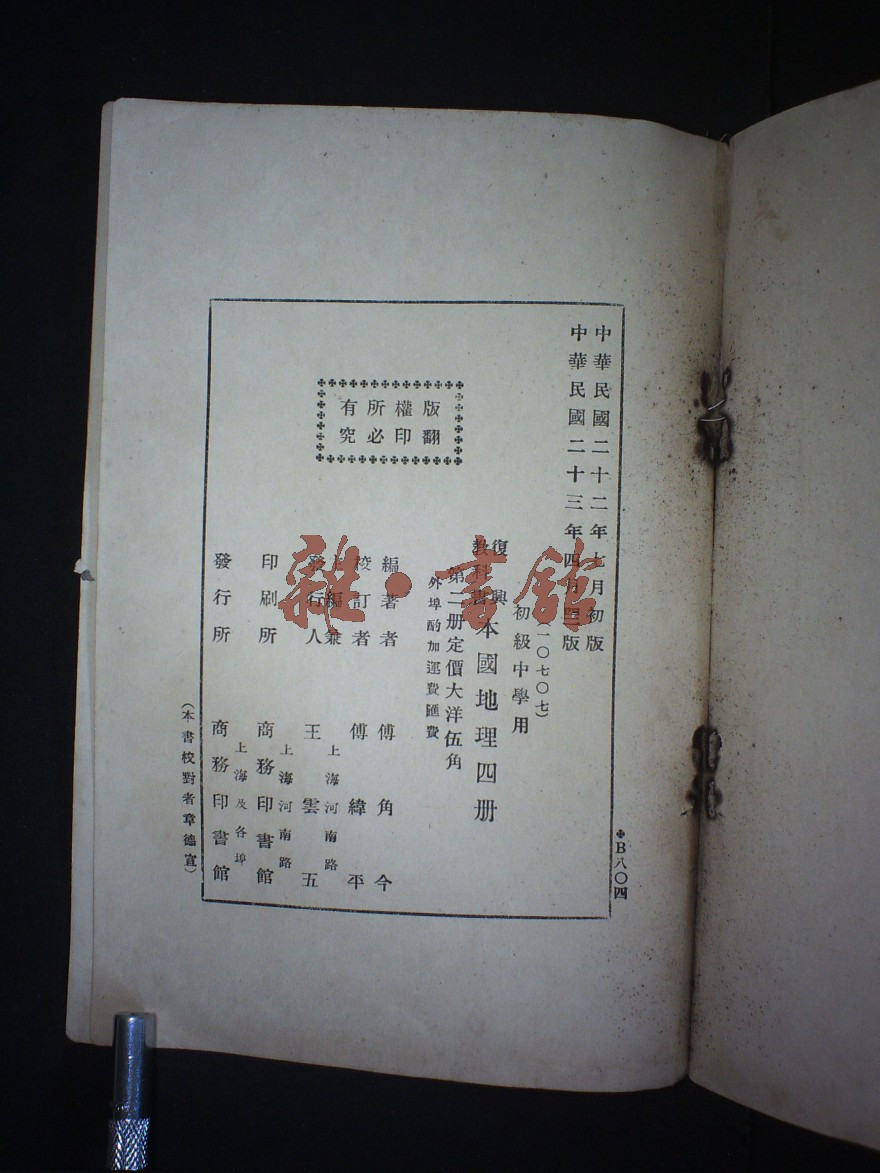 中華民國二十二年七月初版
中華民國二十三年四月　版
(一〇七〇七)
初級中學用
復興
教科書
本國地理四册
第二册定價大洋伍角
外埠酌加運費匯費
版權所有
翻印必究
編著者　傅角今
校訂者　傅緯平
主編兼
發行人　王雲五
上海河南路
印刷所　商務印書館
上海河南路
發行所　商務印書館
上海及各埠
(本書校對者章德宣)
B八〇四
雜·書館